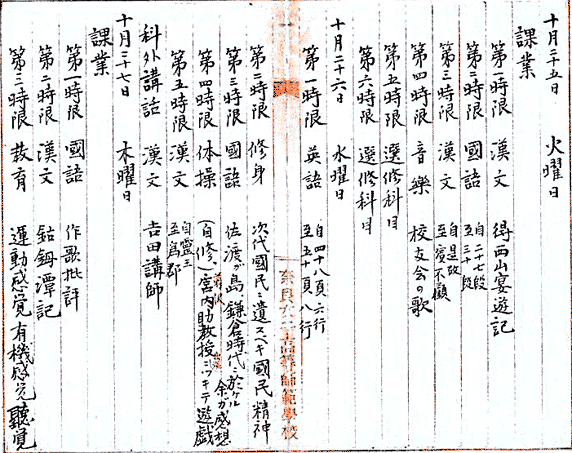 十月二十五日 火曜日
課業
第一時限 漢文 得西山宴遊記
第二時限 國語 自二十七段 至三十段
第三時限 漢文 自是故 至 不顧
第四時限 音樂 校友会の歌
第五時限 選修科目
第六時限 選修科目
十月二十六日 水曜日
第一時限 英語 自四十八頁六行 至五十頁八行
奈良女子高等師範學校
第二時限 修身 次代國民ニ遺スベキ國民精神
第三時限 國語 佐渡が島 鎌倉時代ニ於ケル余ガ感想
第四時限 体操 (自修、)宮内助教授ニツキテ遊戯
第五時限 漢文 自靈王 至為郡
科外講話 漢文 吉田講師
十月二十七日 木曜日
課業
第一時限 國語 作歌批評
第二時限 漢文 鈷鉧潭記
第三時限 教育 運動感覚 有機感覚 聽覚